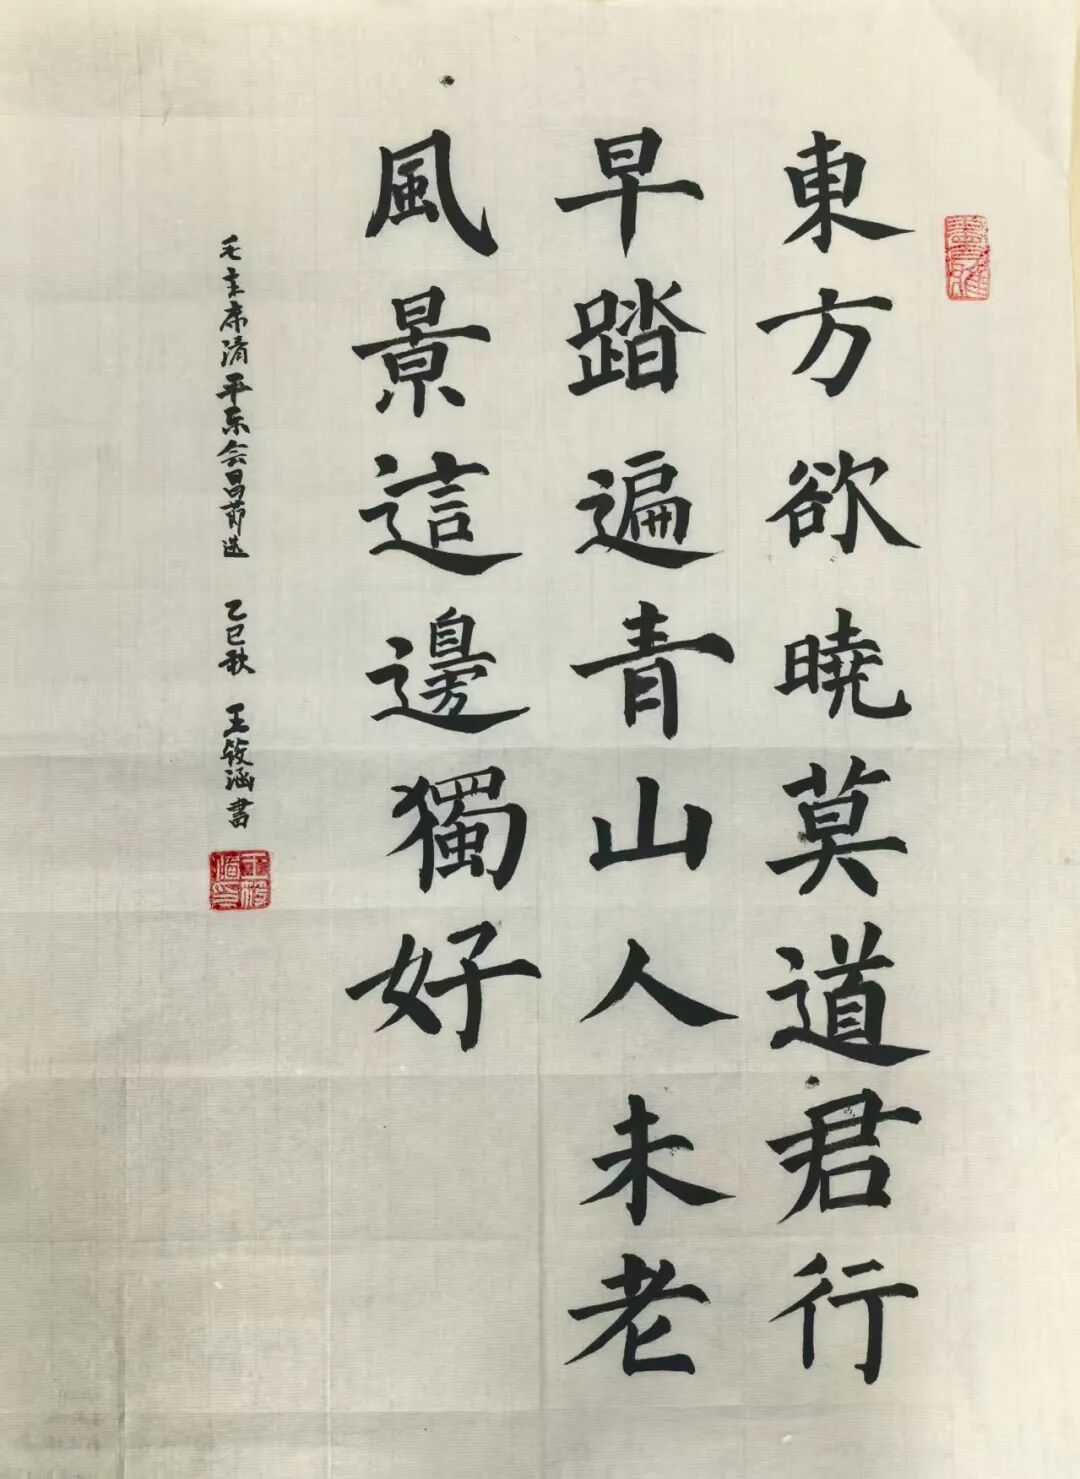 東方欲曉莫道君行
早踏遍青山人未老
風景這邊獨好
毛主席清平乐会昌节选 乙巳秋 王筱涵書
王筱涵印